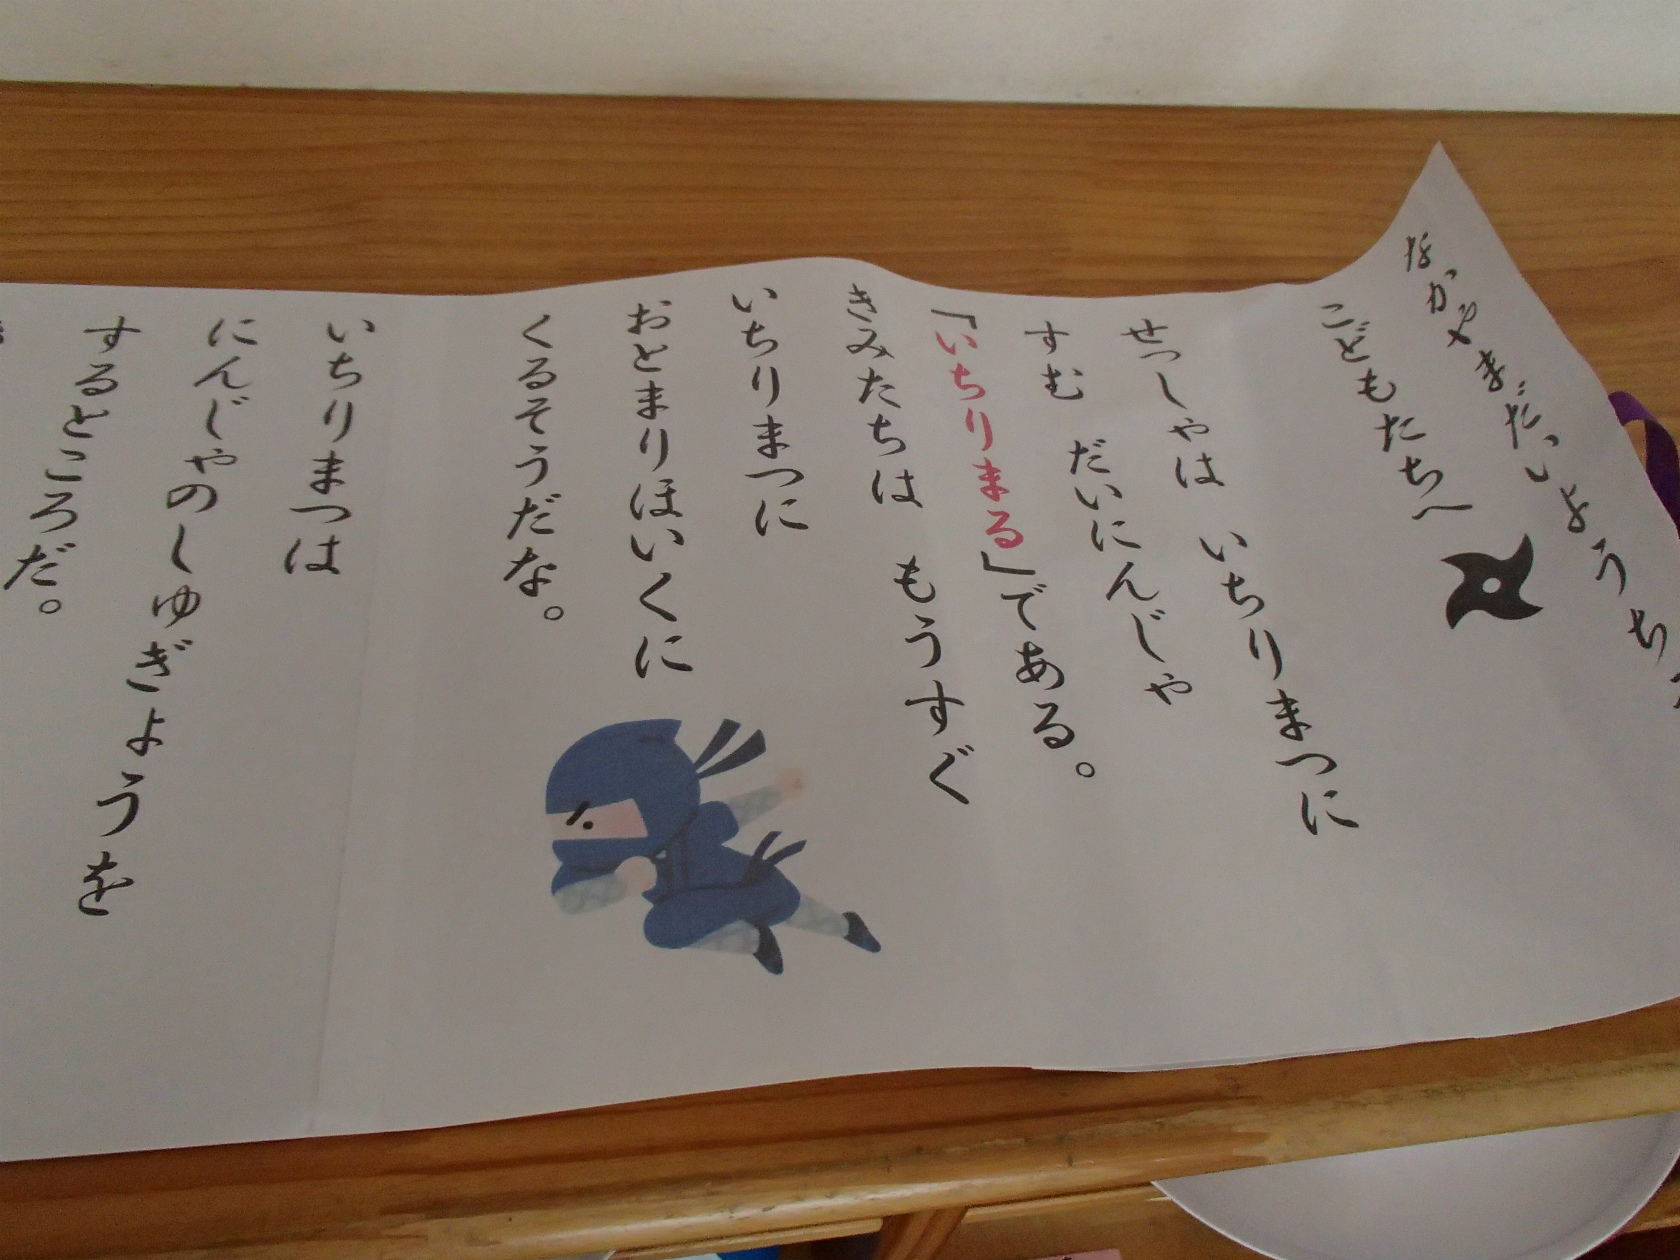 なかやまだいようち
こどもたちへ
せっしゃは いちりまつに
すむ だいにんじゃ
「いちりまる」である。
きみたちは もうすぐ
いちりまつに
おとまりほいくに
くるそうだな。
いちりまつは
にんじゃのしゅぎょうを
するところだ。